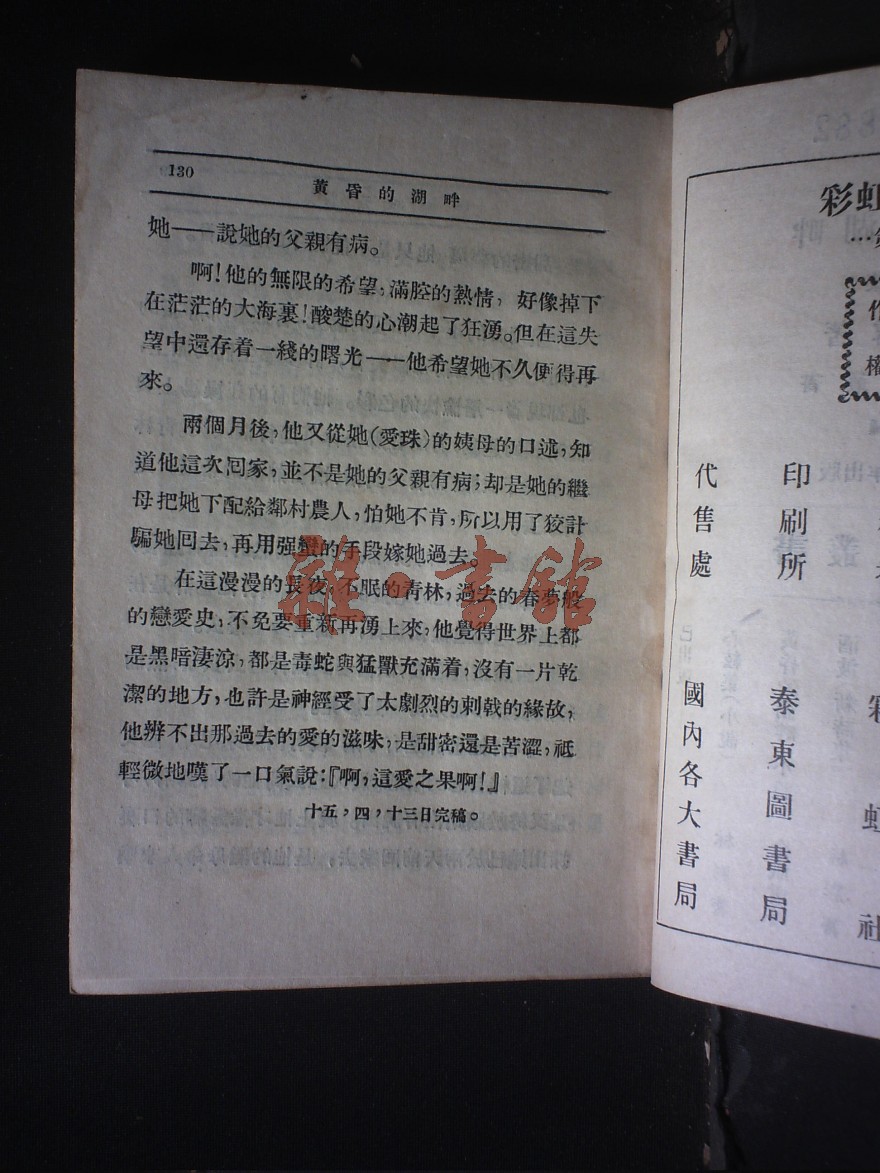 130
黃昏的湖畔
她——說她的父親有病。
啊!他的無限的希望,滿腔的熱情,好像掉下
在茫茫的大海裏!酸楚的心潮起了狂湧。但在這失
望中還存着一綫的曙光——他希望她不久便得再
來。
兩個月後,他又從她(愛珠)的姨母的口述,知
道他這次回家,並不是她的父親有病;却是她的繼
母把她下配給鄰村農人,怕她不肯,所以用了狡計
騙她回去,再用强蠻的手段嫁她過去。
在這漫漫的長夜,不眠的青林,過去的春夢般
的戀愛史,不免要重新再湧上來,他覺得世界上都
是黑暗淒涼,都是毒蛇與猛獸充滿着,沒有一片乾
潔的地方,也許是神經受了太劇烈的刺戟的緣故,
他辨不出那過去的愛的滋味,是甜密還是苦澀,祗
輕微地嘆了一口氣說:『啊,這愛之果啊!』
十五,四,十三日完稿。
雜·書館
彩虹
印刷所 泰東圖書局
代售處 國內各大書局
社